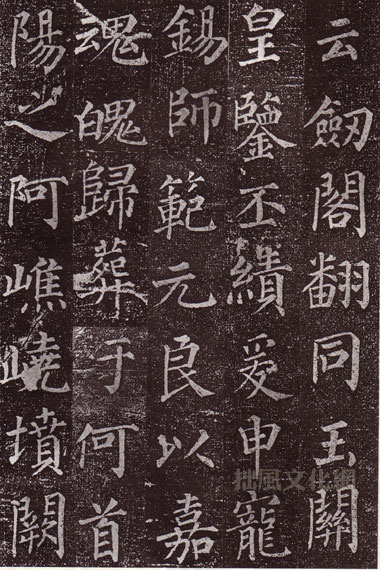 云劔閣翻同玉關
皇鑒丕績爰申寵
錫師範元良以嘉
魂魄歸葬于何首
陽之阿嶕嶢墳闕
拙風文化網